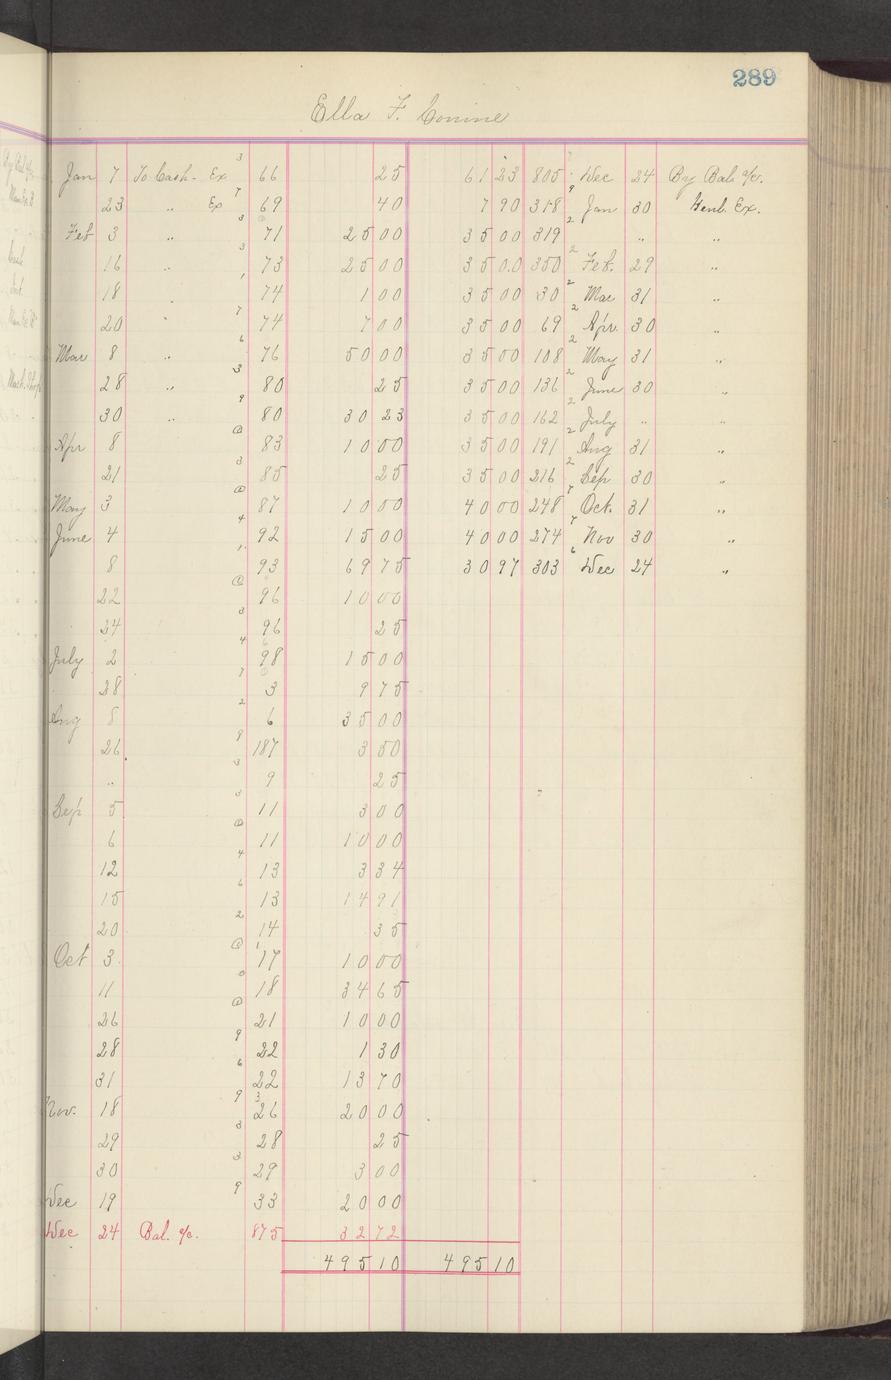 289
Ella F. Conine
Jan 7 To Cash - Ex 3 66 25 61 23 805 Dec 24 By Bal. a/c.
23 " Ex 7 69 40 7 90 318 9 Jan 30 Genl. Ex.
Feb 3 " 3 71 25 00 35 00 319 2 " "
16 " 3 73 25 00 35 00 350 2 Feb. 29 "
18 " 1 74 1 00 35 00 30 2 Mar 31 "
20 " 7 74 7 00 35 00 69 2 Apr. 30 "
Mar 8 " 6 76 50 00 35 00 108 2 May 31 "
28 " 3 80 25 35 00 136 2 June 30 "
30 " 9 80 30 23 35 00 162 2 July " "
Apr 8 @ 83 10 00 35 00 191 2 Aug 31 "
21 3 85 25 35 00 216 2 Sep 30 "
May 3 @ 87 10 00 40 00 248 7 Oct. 31 "
June 4 4 92 15 00 40 00 274 7 Nov 30 "
8 1 93 69 75 30 97 303 6 Dec 24 "
22 @ 96 10 00
24 3 96 25
July 2 4 98 15 00
28 7 3 9 75
Aug 8 2 6 35 00
26 8 187 3 50
" 3 9 25
Sep 5 3 11 3 00
6 @ 11 10 00
12 4 13 3 34
15 6 13 14 91
20 2 14 35
Oct 3 @ 17 10 00
11 0 18 34 65
26 @ 21 10 00
28 9 22 1 30
31 6 22 13 70
Nov. 18 9 26 20 00
29 3 28 25
30 3 29 3 00
Dec 19 9 33 20 00
Dec 24 Bal. a/c. 875 32 72
495 10 495 10